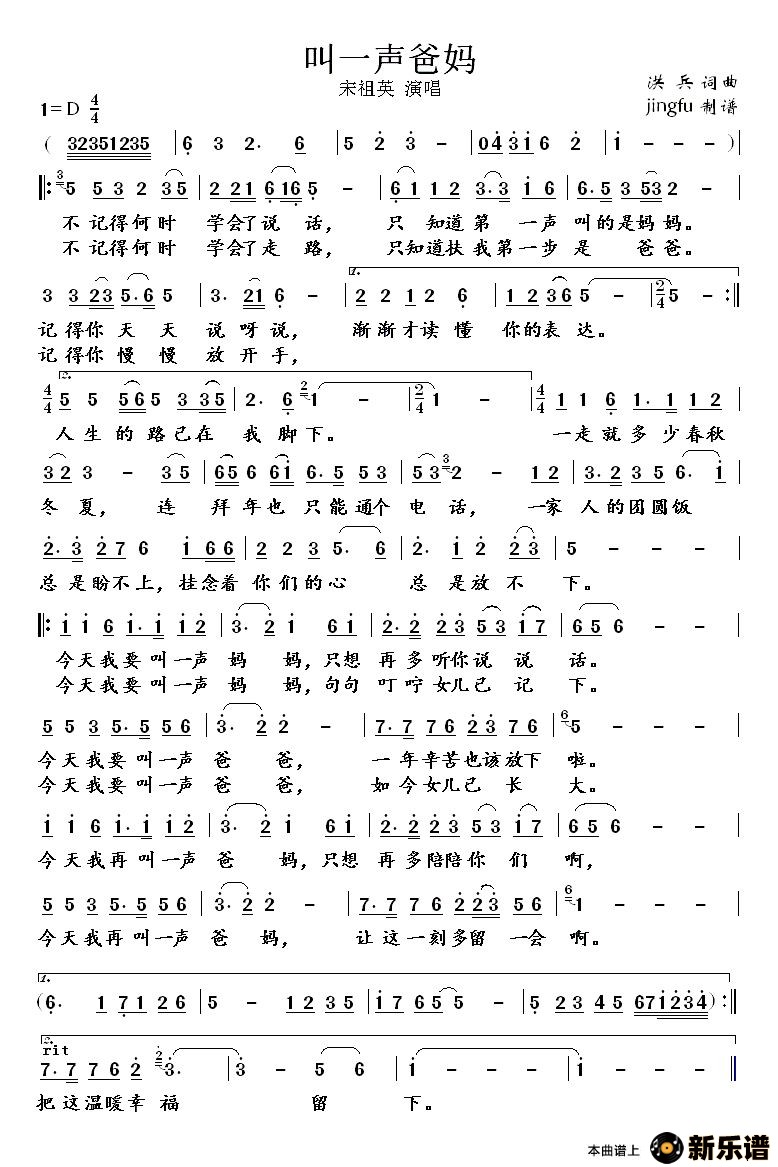 叫一声爸妈
宋祖英 演唱
洪兵词曲
1=D 4/4
jingfu 制谱
( 32351235 | 6 3 2. 6 | 5 2 3 - | 043i6 2 | i - - - ) |
3 5 5 3 2 35 | 2 21 616 5 - | 6 1 12 3. 3 i 6 | 6. 5 35 32 - - |
不记得何时 学会了说话， 只知道第一声叫的是妈妈。
不记得何时 学会了走路， 只知道扶我第一步是爸爸。
1.
3 3 23 5. 6 5 | 3. 21 6 - | 2 22 12 6 | 12 36 5 - | 2/4 5 - :
记得你天天说呀说， 渐渐才读懂 你的表达。
记得你慢慢放开手，
2.
4/4 5 5 56 5 3 35 | 2. 6 2 1 - | 2/4 1 - | 4/4 1 1 6 1. 1 12 |
人生的路已在我脚下。 一走就多少春秋
3 2 3 - 35 | 65 6 6i 6. 5 53 | 53 3 2 - 12 | 3. 5 23 6. i |
冬夏， 连拜年也只能通个电话， 一家人的团圆饭
2. 3 2 7 6 1 66 | 2 2 3 5. 6 | 2. 1 2 23 | 5 - - - |
总是盼不上，挂念着你们的心 总是放不下。
: i i 6 i. i i 2 | 3. 2 i 6i | 2. 2 23 53 i7 | 656 - - |
今天我要叫一声妈妈，只想再多听你说说话。
今天我要叫一声妈妈，句句叮咛女儿已记下。
5 5 3 5. 5 56 | 3. 2 2 - | 7. 7 76 23 76 | 6 5 - - - |
今天我要叫一声爸爸， 一年辛苦也该放下啦。
今天我要叫一声爸爸， 如今女儿已长大。
i i 6 i. i i 2 | 3. 2 i 6i | 2. 2 23 53 i7 | 656 - - |
今天我再叫一声爸妈，只想再多陪陪你们啊，
5 5 3 5. 5 56 | 3. 2 2 - | 7. 7 76 223 56 | 6 1 - - - |
今天我再叫一声爸妈， 让这一刻多留一会啊。
1.
( 6. 1 71 26 | 5 - 123 35 | 2 6 5 - | 5 23 45 671234 ) :
2.
rit
7. 7 77 6 2 2 3. | 3 - 5 6 | i - - - | i - - - |
把这温暖幸福 留下。
本曲谱上 新乐谱